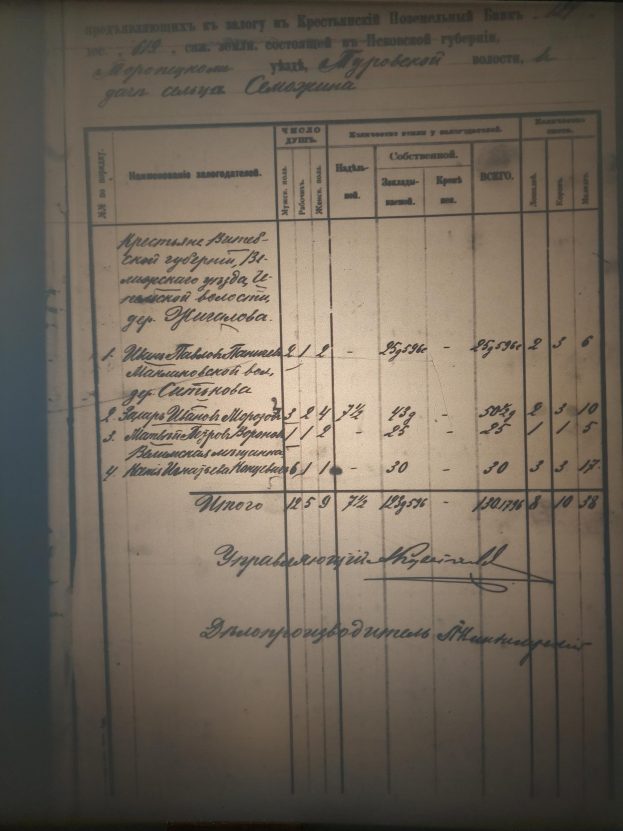 предъявляющихъ къ залогу въ Крестьянскій Поземельный Банкъ
дес. 619 саж. земли, состоящей въ Псковской губерніи,
Торопецкомъ уѣздѣ, Туровской волости,
дачѣ сельца Семожина
№№ по порядку.
Наименованіе залогодателей.
ЧИСЛО ДУШЪ.
Мужск. пола.
Рабочихъ.
Женск. пола.
Количество земли у залогодателей.
Надѣльной.
Собственной.
Закладываемой.
Кромѣ нея.
ВСЕГО.
Количество скота.
Лошадей.
Коровъ.
Мелкаго.
Крестьяне Витебской
губерніи, Велижскаго
уѣзда,
волости
дер. Жигалова.
1 Иванъ Павловъ 2 1 2 - 25д596с - 25д596с 2 3 6
Маклиновской вол,
дер. Ситькова
2 Захаръ Ивановъ Морозовъ 3 2 4 7½ 43д - 50½д 2 3 10
3 Матвѣй Петровъ Вороновъ 1 1 2 - 25 - 25 1 1 5
Велижская мѣщанка
4 Игнатьева 6 1 1 - 30 - 30 3 3 17
Итого 12 5 9 7½ 123д596 - 8 10 38
Управляющій
Дѣлопроизводитель